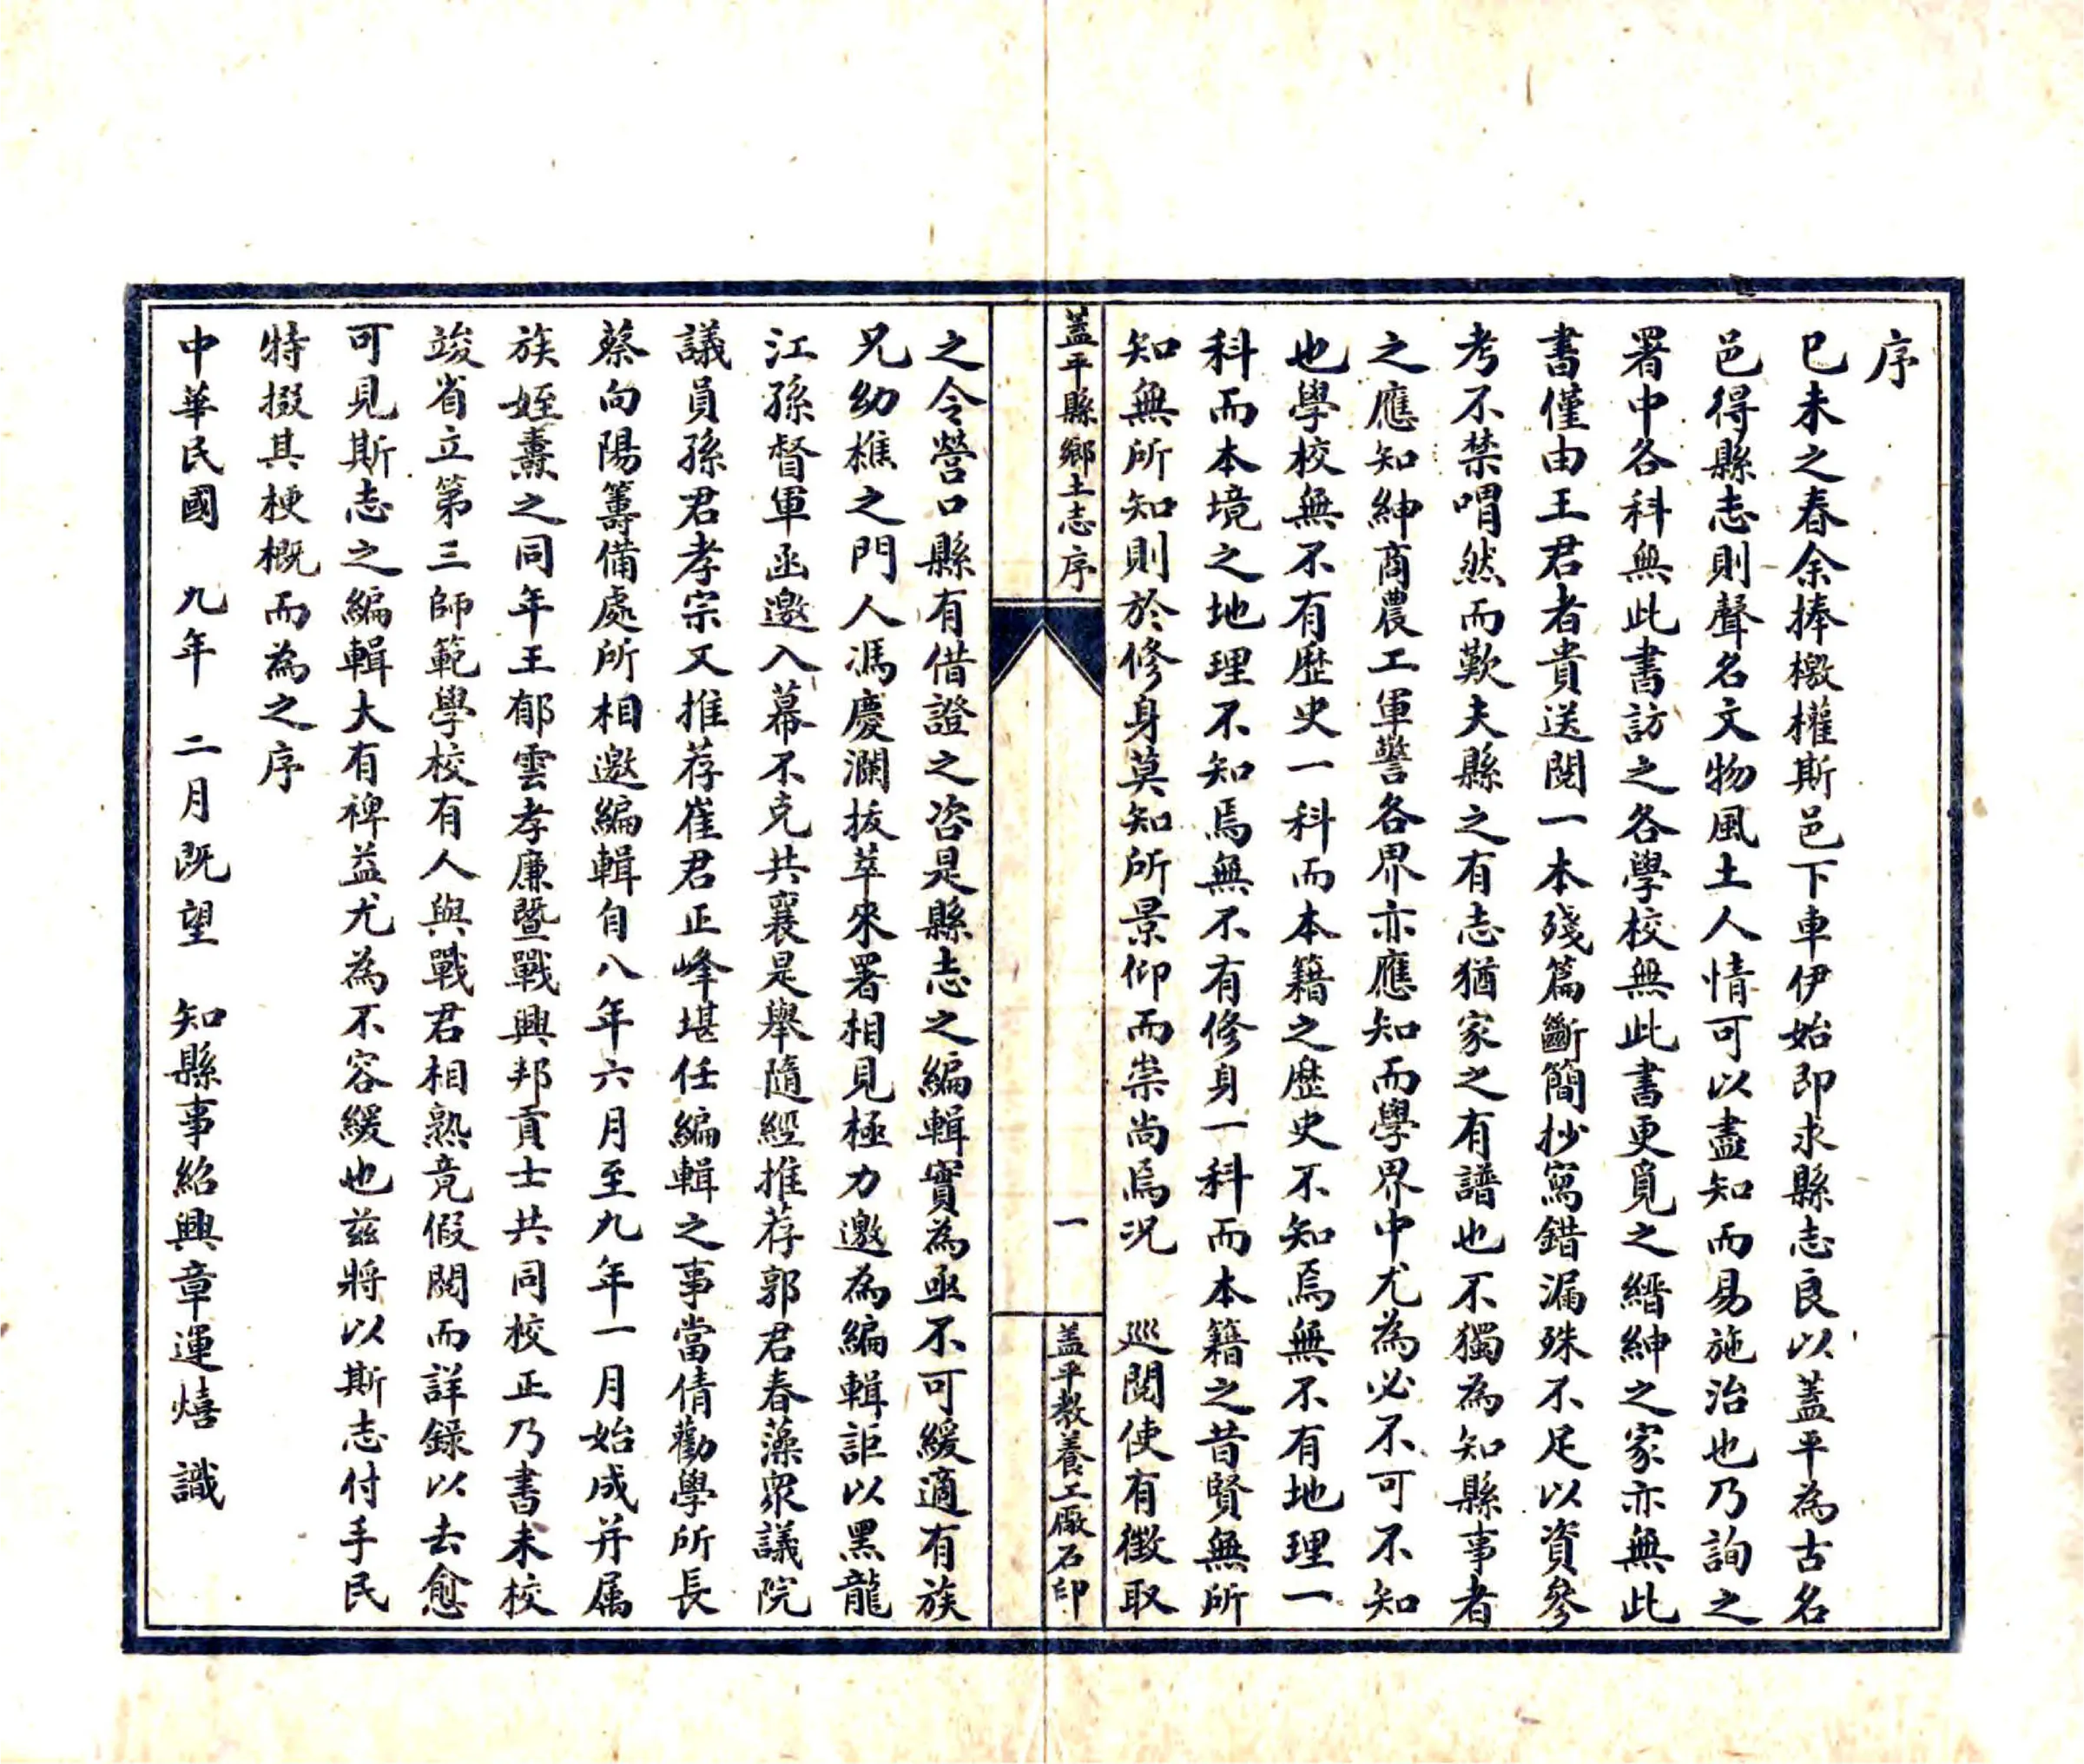 序
巳未之春余捧檄權斯邑下車伊始即求縣志良以蓋平為古名
邑得縣志則聲名文物風土人情可以盡知而易施治也乃詢之
署中各科無此書訪之各學校無此書更覓之縉紳之家亦無此
書僅由王君者貴送閱一本殘篇斷簡抄寫錯漏殊不足以資參
考不禁喟然而歎夫縣之有志猶家之有譜也不獨為知縣事者
之應知紳商農工軍警各界亦應知而學界中尤為必不可不知
也學校無不有歷史一科而本籍之歷史不知焉無不有地理一
科而本境之地理不知焉無不有修身一科而本籍之昔賢無所
知無所知則於修身莫知所景仰而崇尚焉況　巡閱使有徵取
蓋平縣鄉土志序
一
蓋平教養工廠石印
之令營口縣有借證之咨是縣志之編輯實為亟不可緩適有族
兄幼樵之門人馮慶瀾拔萃來署相見極力邀為編輯詎以黑龍
江孫督軍函邀入幕不克共襄是舉隨經推荐郭君春藻眾議院
議員孫君孝宗又推荐崔君正峰堪任編輯之事當倩勸學所長
蔡向陽籌備處所相邀編輯自八年六月至九年一月始成并属
族姪燾之同年王郁雲孝廉暨戰興邦貢士共同校正乃書未校
竣省立第三師範學校有人與戰君相熟竟假閱而詳録以去愈
可見斯志之編輯大有裨益尤為不容緩也茲將以斯志付手民
特掇其梗概而為之序
中華民國　九年　二月既望　知縣事紹興章運熺　識